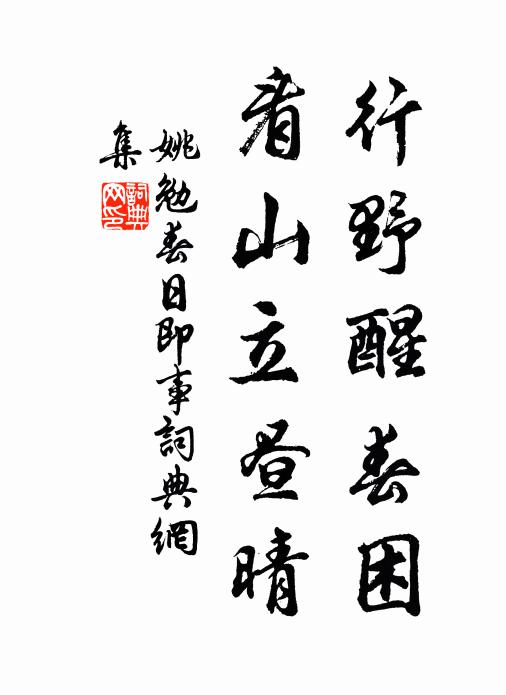 行野醒春困
看山立昼晴
姚勉春日即事詞典網
集
詞典
网印